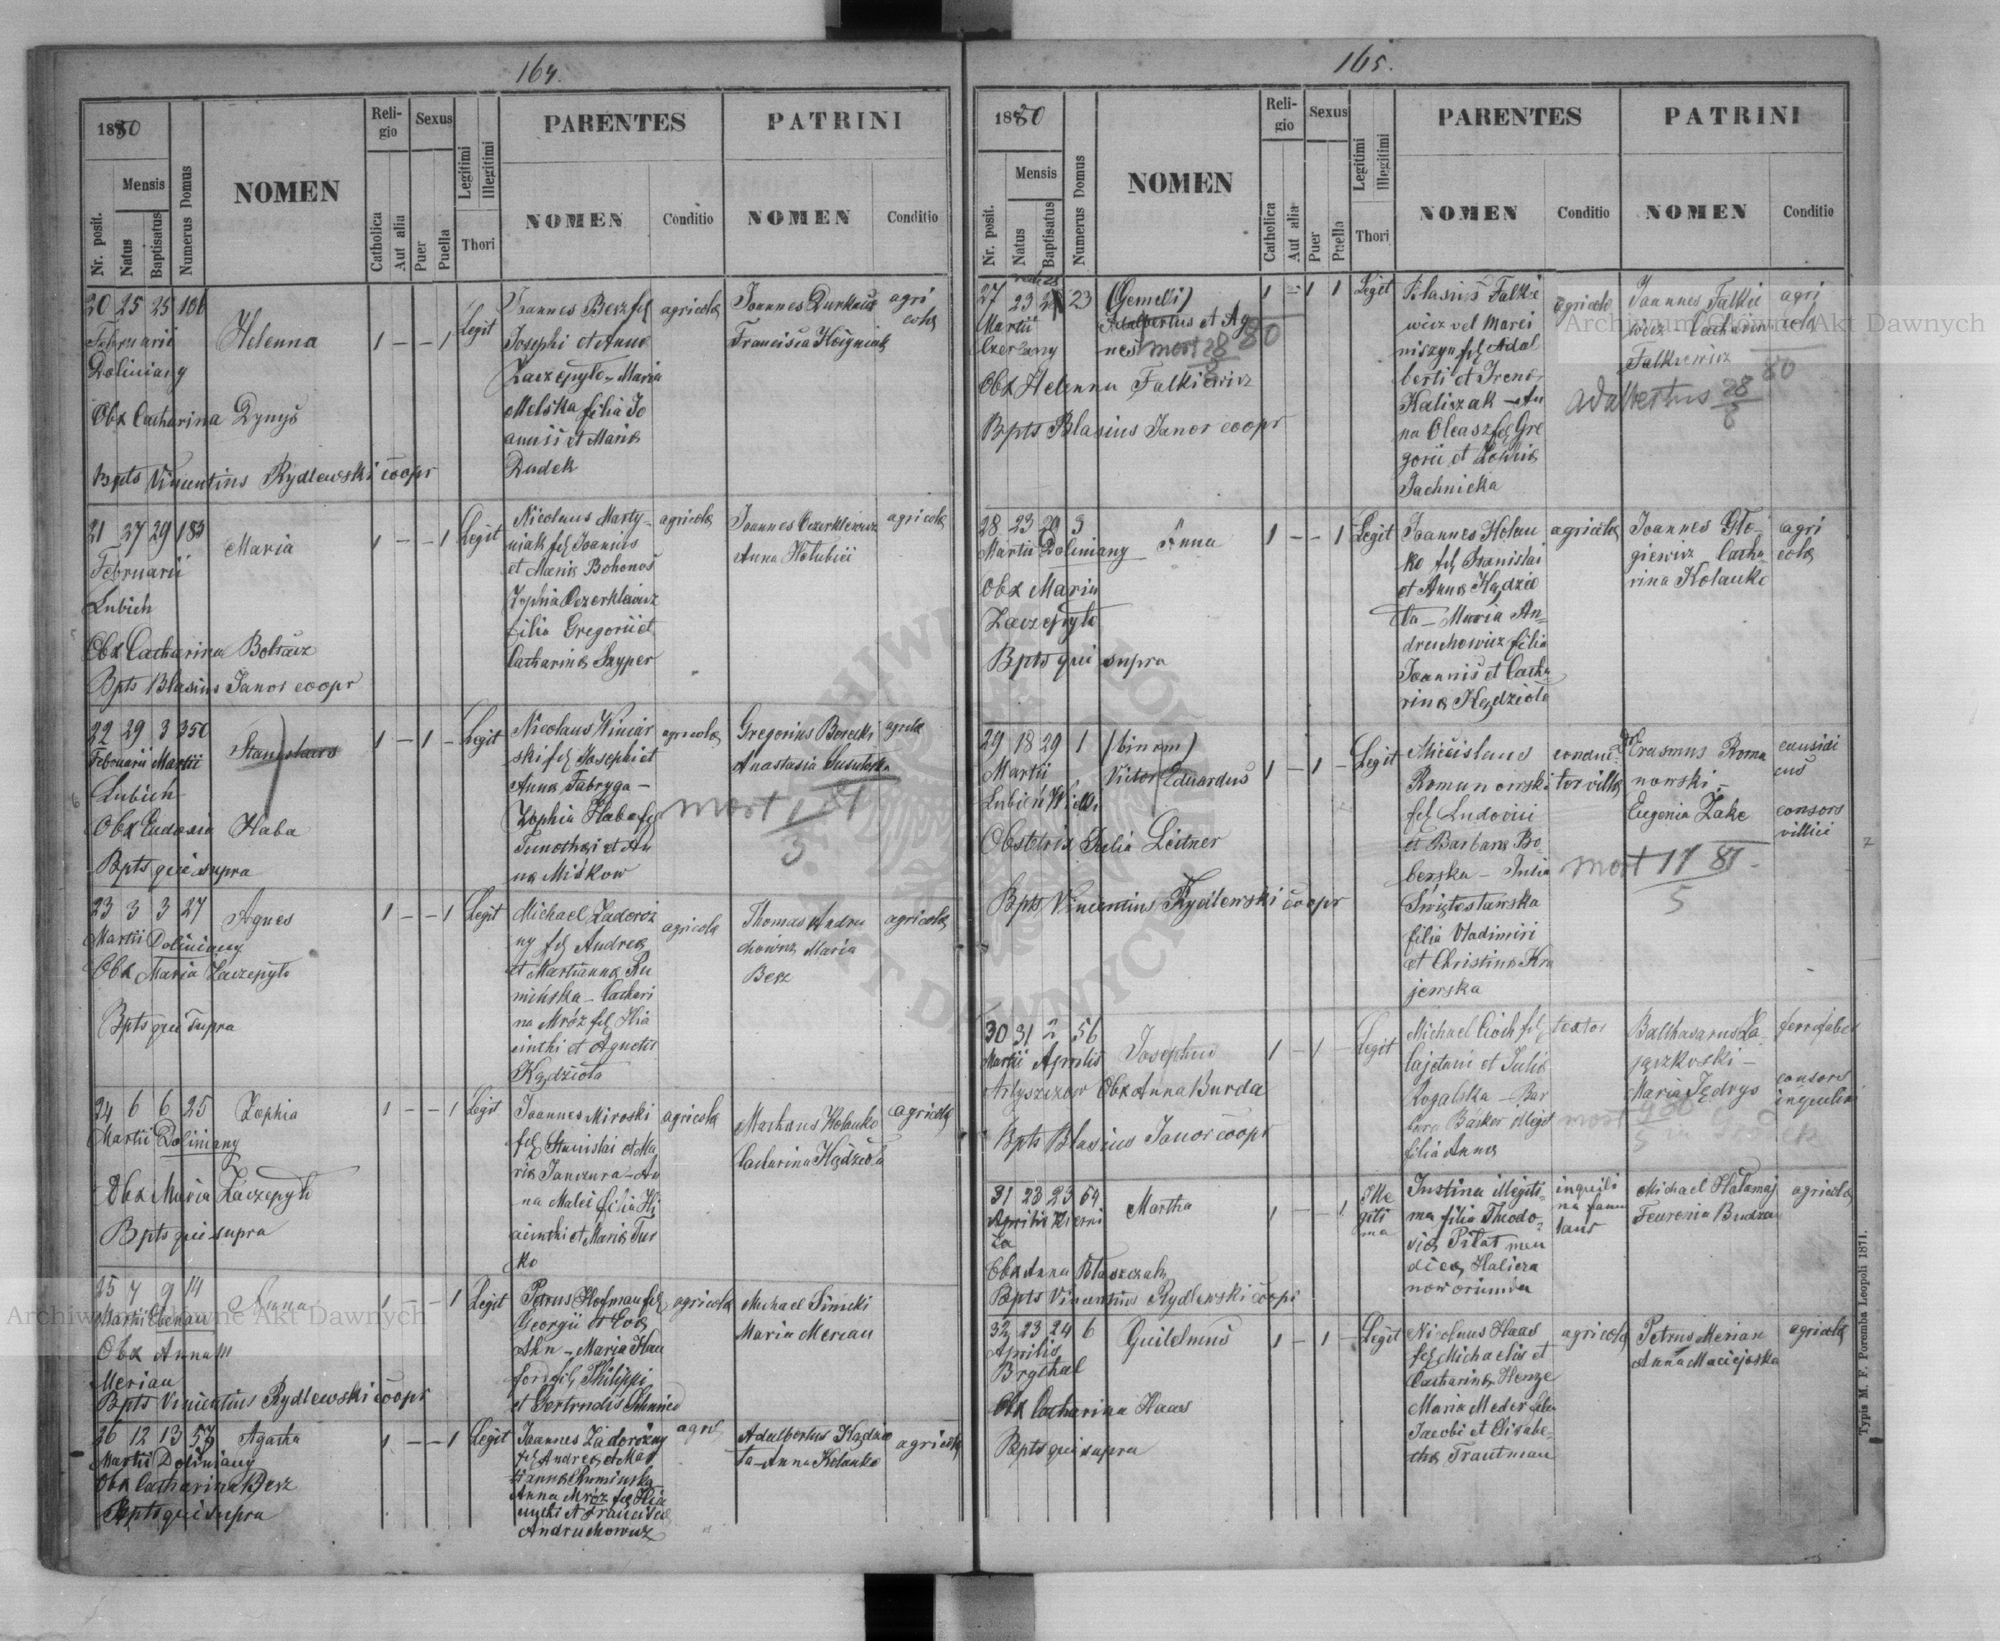 164.
1880
Nr. posit.
Mensis
Natus
Baptisatus
Numerus Domus
NOMEN
Religio
Catholica
Aut alia
Sexus
Puer
Puella
Legitimi
Illegitimi
Thori
PARENTES
NOMEN
Conditio
PATRINI
NOMEN
Conditio
20 25 25 106
Februarii
Doliniany
Helenna
Obx Catharina Dynys
Bpts Vincentius Rydlewski coopr
1 – – 1
Legit
Joannes Besz fil
Josephi et Anna
Zaczepylo – Maria
Melska filia Jo
annis et Maria
Dudek
agricola
Joannes Durkacz
Francisca
agri
cola
21 27 29 183
Februarii
Lubień
Maria
Obx Catharina
Bpts Blasius Janor coopr
1 – – 1
Legit
Nicolaus Marty
niak fil Joannis
et Maria Bohonos
Zophia Czerkiewicz
filia Gregorii et
Catharina Szyper
agricola
Joannes Czerkiewicz
Anna Holubici
agricola
22 29 3 350
Februarii Martii
Lubień
Stanislaus
Obx Eudoxia Haba
Bpts qui supra
1 – 1 –
Legit
Nicolaus Winiar
ski fil Josephi et
Anna Fabryga –
Zophia Haba fil
Timothei et An
na Miśkow
agricola
Gregorius Borecki
Anastasia
agricola
mort
23 3 3 27
Martii Doliniany
Agnes
Obx Maria Zaczepylo
Bpts qui supra
1 – – 1
Legit
Michael Zadoroż
ny fil Andrea
et Marianna Ru
mińska – Cathari
na Mróz fil Hia
cinthi et Agnetis
Kądziola
agricola
Thomas Andru
chowicz Maria
Besz
agricola
24 6 6 25
Martii Doliniany
Zophia
Obx Maria Zaczepylo
Bpts qui supra
1 – – 1
Legit
Joannes Miroski
fil Stanislai et Ma
ria Janczura – An
na Malec filia Hi
acinthi et Maria Tur
ko
agricola
Marianus Kolanko
Catharina Kądziola
agricola
25 7 9 14
Martii Ebenau
Anna
Obx Anna
Merian
Bpts Vincentius Rydlewski coopr
1 – – 1
Legit
Petrus Hofman fil
Georgii et Eva
– Maria
fil Philippi
et Gertrudis
agricola
Michael Simcki
Maria Merian
26 12 13 57
Martii Doliniany
Agatha
Obx Catharina Besz
Bpts qui supra
1 – – 1
Legit
Joannes Zadorożny
fil Andrea et Mar
ianna Rumińska
Anna Mróz fil Hia
cinthi et Francisca
Andruchowicz
agric
Adalbertus Kądzio
la – Anna Kolanko
agricola
165.
1880
Nr. posit.
Mensis
Natus
Baptisatus
Numerus Domus
NOMEN
Religio
Catholica
Aut alia
Sexus
Puer
Puella
Legitimi
Illegitimi
Thori
PARENTES
NOMEN
Conditio
PATRINI
NOMEN
Conditio
27 23 23
Martii
Czerlany
(Gemelli)
Adalbertus et Ag
nes mort 28 80
8
Obx Helenna Falkiewicz
Bpts Blasius Janor coopr
1 – 1 1
Legit
Blasius Falkie
wicz vel Marci
niszyn fil Adal
berti et Irena
Kaliszak – An
na Oleasz fil Gre
gorii et Zophia
Jachnicka
agricola
Joannes Falkie
wicz Catharina
Falkiewicz
agri
cola
Adalbertus 28 80
8
28 23 29 3
Martii Doliniany
Anna
Obx Maria
Zaczepylo
Bpts qui supra
1 – – 1
Legit
Joannes Kolan
ko fil Stanislai
et Anna Kądzio
la – Maria An
druchowicz filia
Joannis et Catha
rina Kądziola
agricola
Joannes Glo
giewicz Catha
rina Kolanko
agri
cola
29 18 29 1
Martii
Lubień Wielki
(binom)
Victor Eduardus
Obstetrix Julia Leitner
Bpts Vincentius Rydlewski coopr
1 – 1 –
Legit
Miecislaus
Romanowski
fil Ludovici
et Barbara Bo
berska – Julia
Świętosławska
filia Vladimiri
et Christina Kra
jewska
conduc
tor villa
Erasmus Roma
nowski –
Eugenia Zake
causidi
cus
consors
villici
mort 17 81
5
30 31 2 56
Martii Aprilis
Artyszczow
Josephus
Obx Anna Burda
Bpts Blasius Janor coopr
1 – 1 –
Legit
Michael Cioch fil
Cajetani et Julia
Rogalska – Bar
bara Basker illegit
filia Anna
textor
Balthasarus Za
jączkoski –
Maria Jędrys
ferrifaber
consors
inquilini
mort
31 23 23 64
Aprilis Kierni
ca
Martha
Obx Anna Błaszczak
Bpts Vincentius Rydlewski coopr
1 – – 1
Ille
giti
ma
Justina illegiti
ma filia Theodo
via Pilat men
dica Halicza
noworiunda
inquili
na famu
lans
Michael Hałamaj
Feuronia Budza
agricola
32 23 24 6
Aprilis
Brgthal
Guilelmus
Obx Catharina Haas
Bpts qui supra
1 – 1 –
Legit
Nicolaus Haas
fil Michaelis et
Catharina Henze
Maria Meder filia
Jacobi et Elisabe
tha Trautman
agricola
Petrus Merian
Anna Maciejoska
agricola
Typis M. F. Poremba Leopoli 1871.
Archiwum Główne Akt Dawnych
Archiwum Główne Akt Dawnych